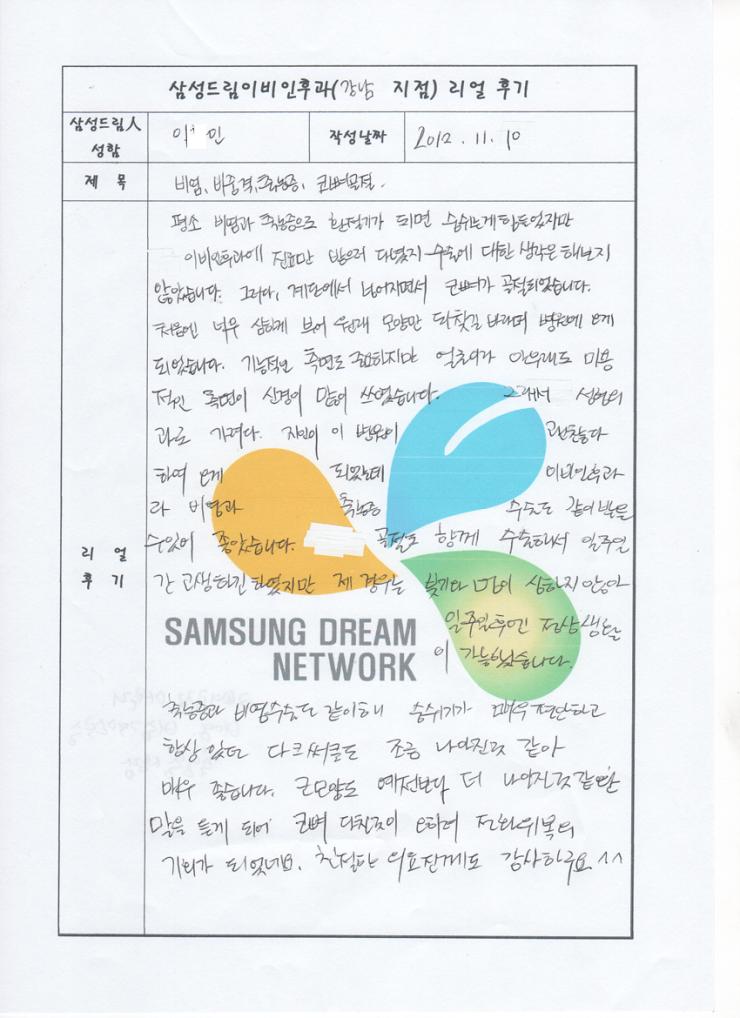 삼성드림이비인후과(강남 지점) 리얼 후기
삼성드림人 성함
이 민
작성날짜
2012. 11. 10
제 목
비염, 비중격, 축농증, 코뼈골절.
리 얼 후 기
평소 비염과 축농증으로 환절기가 되면 숨쉬는게 힘들었지만
이비인후과에 진료만 받으러 다녔지 수술에 대한 생각은 해보지
않았습니다. 그러다, 계단에서 넘어지면서 코뼈가 골절되었습니다.
처음엔 너무 심하게 부어 원래 모양만 되찾길 바라며 병원에 오게
되었습니다. 기능적인 측면도 중요하지만 얼굴이다 아무래도 미용
적인 측면이 신경이 많이 쓰였습니다. 그래서 성형외
과로 가려다. 지인이 이 병원이 괜찮다
하여 오게 되었는데 이비인후과
라 비염과 축농증 수술도 같이 받을
수있어 좋았습니다. 골절도 함께 수술해서 일주일
간 고생하긴 하였지만 제 경우는 붓기와 멍이 심하지 않아
일주일후엔 정상생활
이 가능했습니다.
SAMSUNG DREAM
NETWORK
축농증과 비염수술도 같이해 숨쉬기가 매우 편안하고
항상 있던 다크써클도 조금 나아진것 같아
매우 좋습니다. 코모양도 예전보다 더 나아진것같단
말을 듣게 되어 코뼈 다친것이 오히려 전화위복의
기회가 되었네요. 친절한 의료진께도 감사하구요 ^^